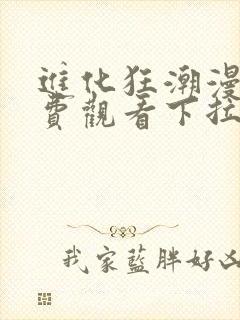 進化狂潮漫
費觀看下拉
我家藍胖好凶